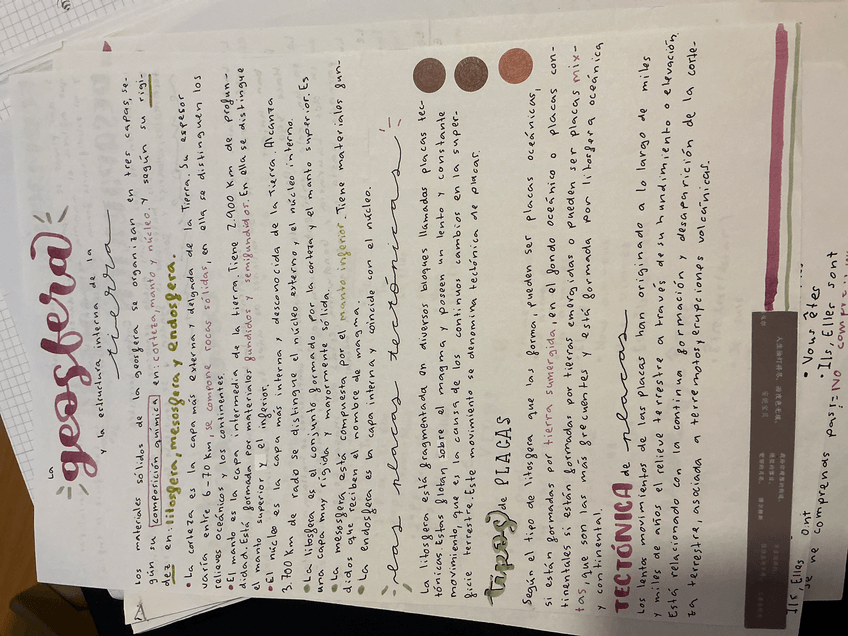 La
geosfera
y la estructura interna de la
tierra
Los materiales sólidos de la geosfera se organizan en tres capas, se-
gún su composición química en: corteza, manto y núcleo. y según su rigi-
dez en: litosfera, mesosfera y endosfera.
• La corteza es la capa más externa y delgada de la Tierra. Su espesor
varía entre 6-70 km, se compone rocas sólidas, en ella se distinguen los
relieves oceánicos y los continentes.
• El manto es la capa intermedia de la tierra. Tiene 2.900 km de profun-
didad. Está formada por materiales fundidos y semifundidos. En ella se distingue
el manto superior y el inferior.
• El núcleo es la capa más interna y desconocida de la Tierra. Alcanza
3.700 km de radio se distingue el núcleo externo y el núcleo interno.
• La litosfera es el conjunto formado por la corteza y el manto superior. Es
una capa muy rígida y mayormente sólida.
• La mesosfera está compuesta por el manto inferior. Tiene materiales fun-
didos que reciben el nombre de magma.
• La endosfera es la capa interna y coincide con el núcleo.
las placas tectónicas
La litosfera está fragmentada en diversos bloques llamados placas tec-
tónicas. Estas flotan sobre el magma y poseen un lento y constante
movimiento, que es la causa de los continuos cambios en la super-
ficie terrestre. Este movimiento se denomina tectónica de placas.
tipos de PLACAS
Según el tipo de litosfera que las forma, pueden ser placas oceánicas,
si están formadas por tierra sumergida, en el fondo oceánico o placas con-
tinentales si están formadas por tierras emergidas o pueden ser placas mix-
tas, que son las más frecuentes y está formada por litosfera oceánica
y continental.
TECTÓNICA de placas
Los lentos movimientos de las placas han originado a lo largo de miles
y miles de años el relieve terrestre a través de su hundimiento o elevación.
Está relacionado con la continua formación y desaparición de la corte-
za terrestre, asociada a terremotos y erupciones volcánicas.
• Vous êtes
• Ils, Elles sont
Ils, Elles ont